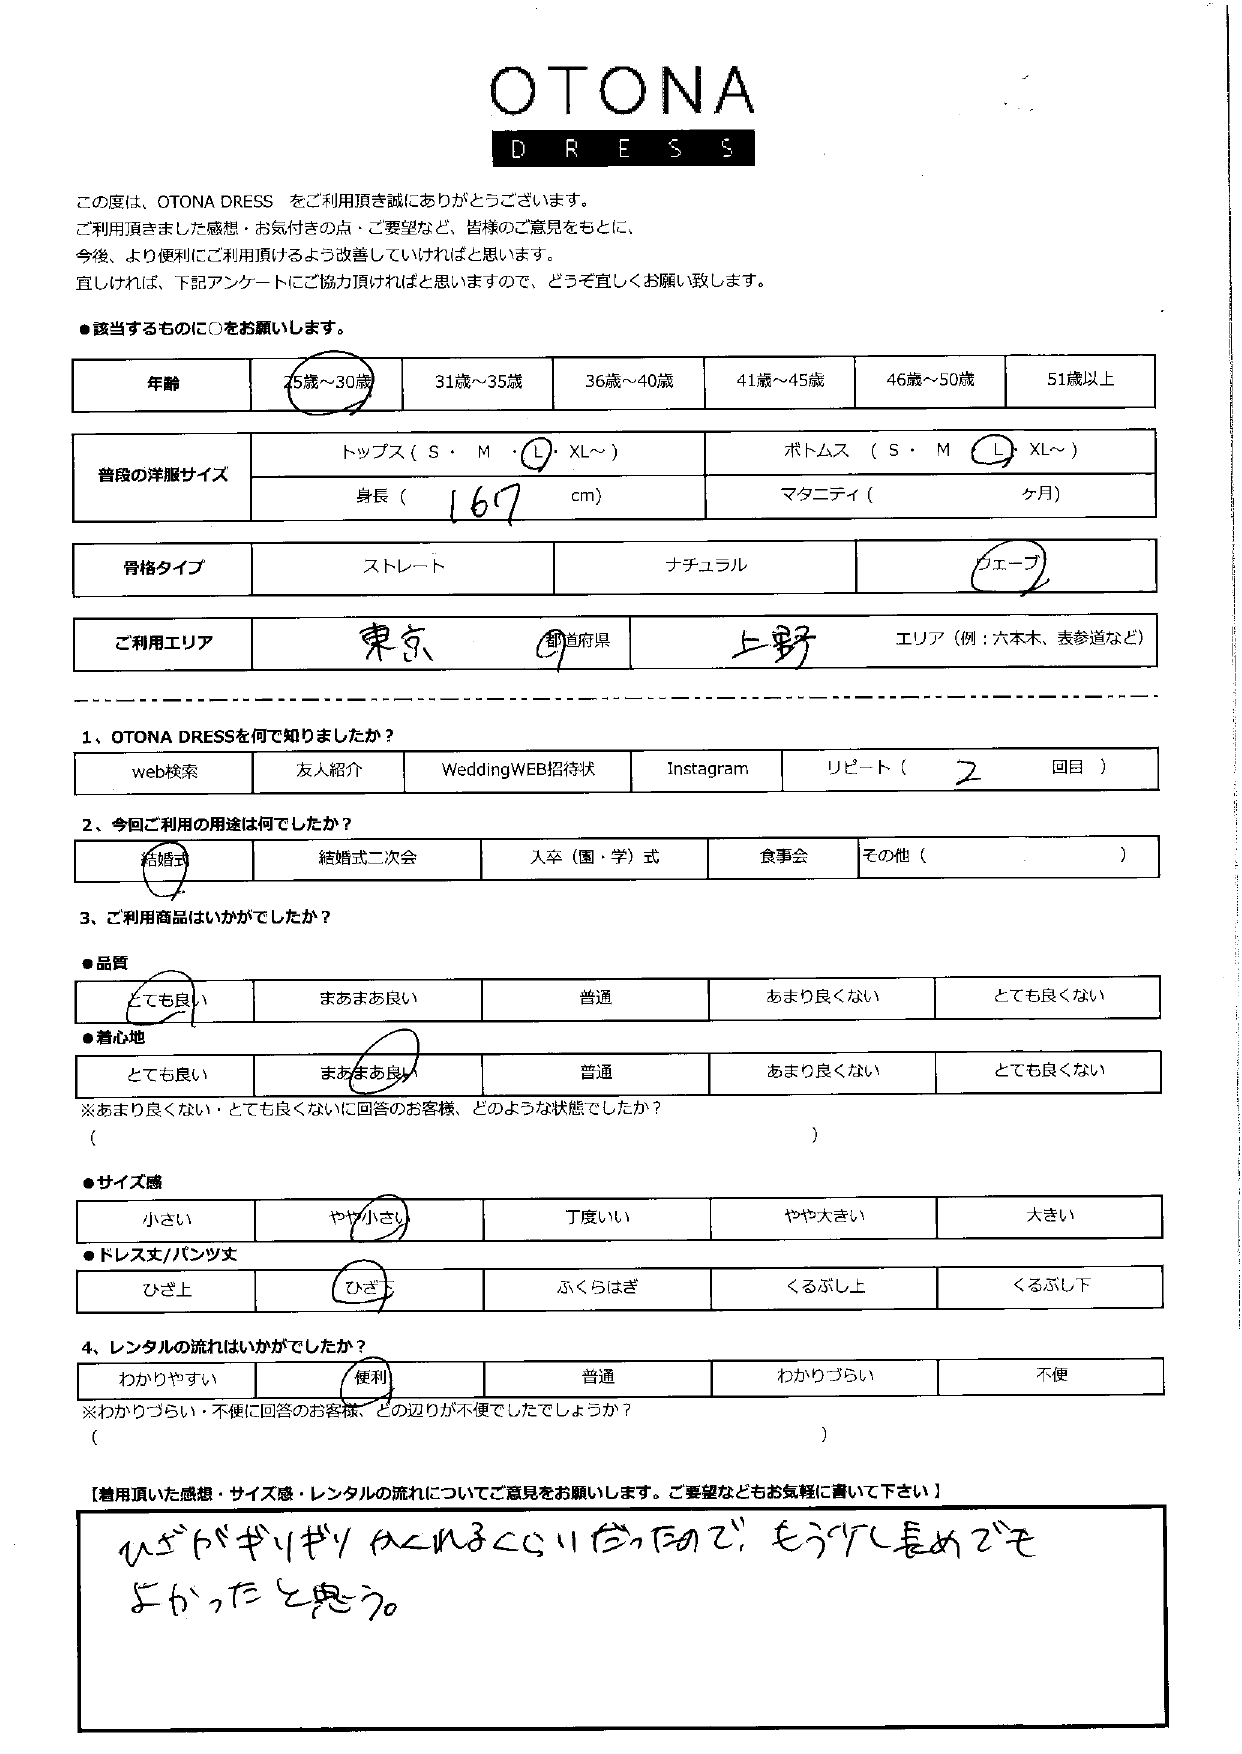 OTONA
DRESS
この度は、OTONA DRESS　をご利用頂き誠にありがとうございます。
ご利用頂きました感想・お気付きの点・ご要望など、皆様のご意見をもとに、
今後、より便利にご利用頂けるよう改善していければと思います。
宜しければ、下記アンケートにご協力頂ければと思いますので、どうぞ宜しくお願い致します。
●該当するものに○をお願いします。
年齢 25歳～30歳 31歳～35歳 36歳～40歳 41歳～45歳 46歳～50歳 51歳以上
普段の洋服サイズ トップス ( S ・ M ・ L ・ XL～ ) ボトムス ( S ・ M L ・ XL～ )
身長 ( 167 cm) マタニティ ( ケ月)
骨格タイプ ストレート ナチュラル ウェーブ
ご利用エリア 東京 都道府県 上野 エリア（例：六本木、表参道など）
1、OTONA DRESSを何で知りましたか？
web検索 友人紹介 WeddingWEB招待状 Instagram リピート ( 2 回目 )
2、今回ご利用の用途は何でしたか？
結婚式 結婚式二次会 入卒（園・学）式 食事会 その他 ( )
3、ご利用商品はいかがでしたか？
●品質
とても良い まあまあ良い 普通 あまり良くない とても良くない
●着心地
とても良い まあまあ良い 普通 あまり良くない とても良くない
※あまり良くない・とても良くないに回答のお客様、どのような状態でしたか？
( )
●サイズ感
小さい やや小さい 丁度いい やや大きい 大きい
●ドレス丈/パンツ丈
ひざ上 ひざ下 ふくらはぎ くるぶし上 くるぶし下
4、レンタルの流れはいかがでしたか？
わかりやすい 便利 普通 わかりづらい 不便
※わかりづらい・不便に回答のお客様、どの辺りが不便でしたでしょうか？
( )
【着用頂いた感想・サイズ感・レンタルの流れについてご意見をお願いします。ご要望などもお気軽に書いて下さい】
ひざがギリギリかくれるくらいだったので、もう少し長めでも
よかったと思う。